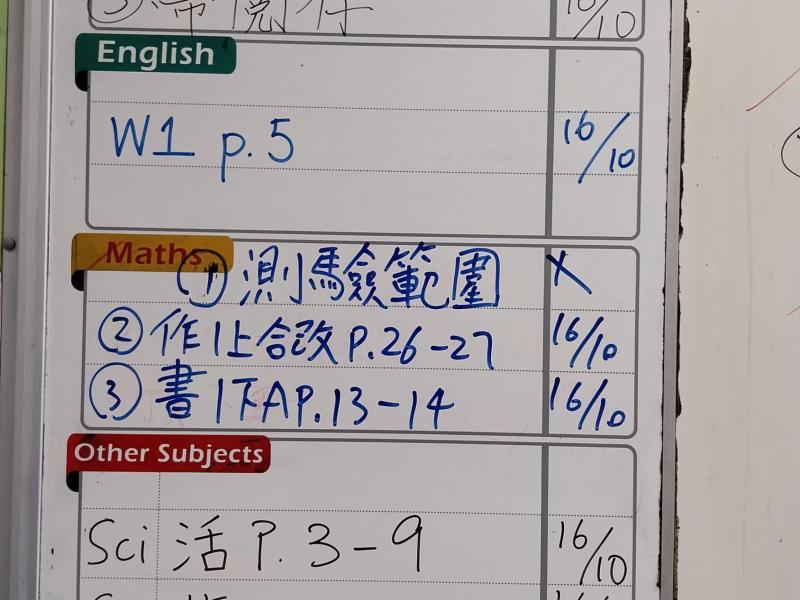 ③ 常閱作 16/10
English
W1 p.5 16/10
Maths
① 測驗範圍 X
② 作1上合改 P.26-27 16/10
③ 書1下A P.13-14 16/10
Other Subjects
Sci 活 P.3-9 16/10